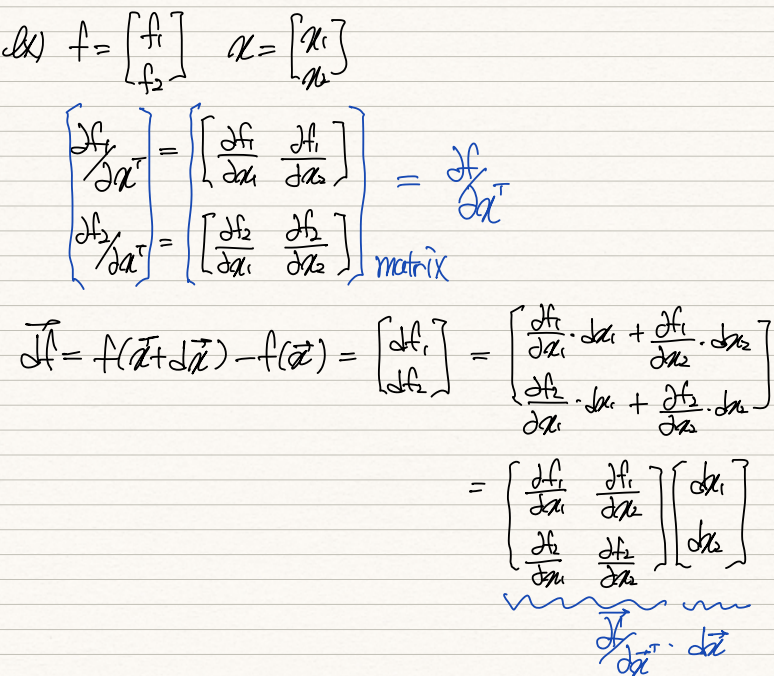 ex) f = [f₁ f₂] x = [x₁ x₂]
[∂f₁/∂xᵀ = [∂f₁/∂x₁ ∂f₁/∂x₂]
∂f₂/∂xᵀ] = [∂f₂/∂x₁ ∂f₂/∂x₂]] = ∂f/∂xᵀ
matrix
d⃗f = f(x⃗+dx⃗) − f(x⃗) = [df₁ df₂] = [∂f₁/∂x₁·dx₁ + ∂f₁/∂x₂·dx₂
∂f₂/∂x₁·dx₁ + ∂f₂/∂x₂·dx₂]
= [∂f₁/∂x₁ ∂f₁/∂x₂
∂f₂/∂x₁ ∂f₂/∂x₂] [dx₁ dx₂]
∂f⃗/∂x⃗ᵀ · dx⃗